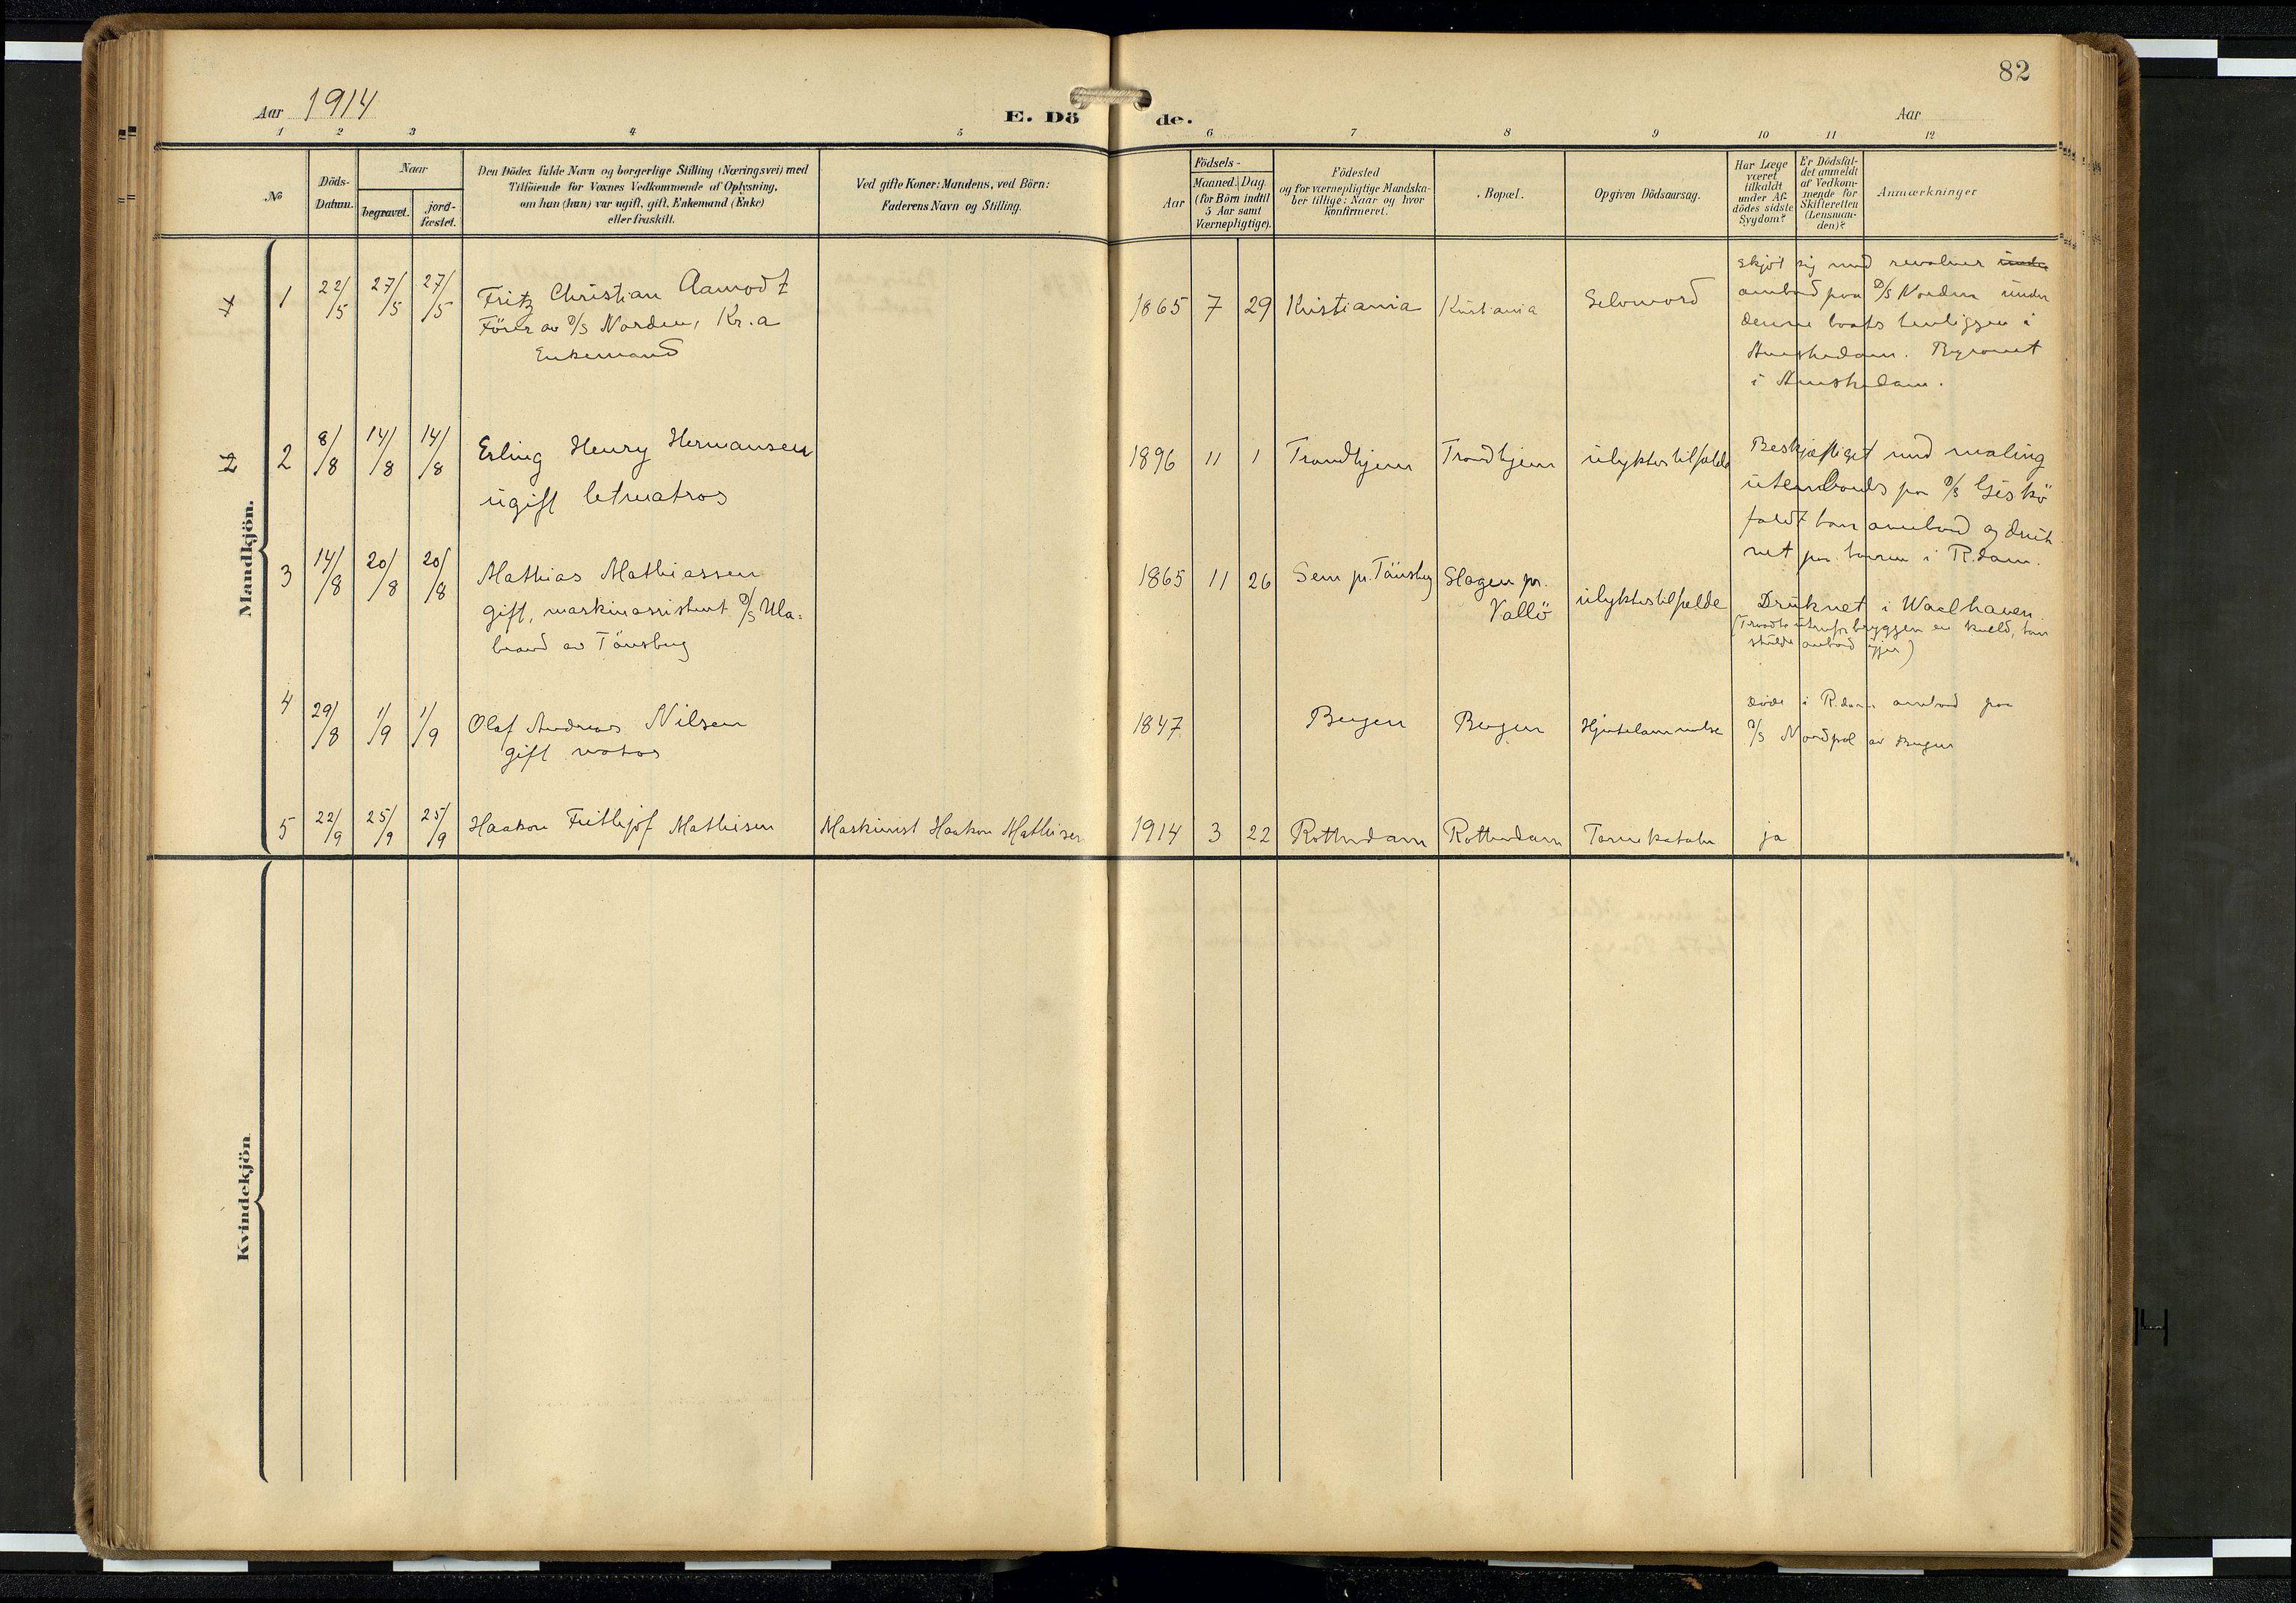 82
Aar 1914
E. Döde.
Aar
1 2 3 4 5 6 7 8 9 10 11 12
No
Döds-Datum.
Naar
begravet.
jord-fæstet.
Den Dödes fulde Navn og borgerlige Stilling (Næringsvei) med
Tilföiende for Voxnes Vedkommende af Oplysning,
om han (hun) var ugift, gift, Enkemand (Enke)
eller fraskilt.
Ved gifte Koner: Mandens, ved Börn:
Faderens Navn og Stilling.
Födsels-
Aar
Maaned. Dag.
(for Börn indtil
5 Aar samt
Værnepligtige).
Födested
og for værnepligtige Mandska-
ber tillige: Naar og hvor
konfirmeret.
Bopæl.
Opgiven Dödsaarsag.
Har Læge
været
tilkaldt
under Af-
dödes sidste
Sygdom?
Er Dödsfal-
det anmeldt
af Vedkom-
mende for
Skifteretten
(Lensman-
den)?
Anmærkninger
Mandkjön.
1 22/5 27/5 27/5 Fritz Christian Aamodt
Förer av D/S Norden, Kr.a
Enkemand
1865 7 29 Kristiania Kristiania Selvmord
skjöt sig med revolver under
ombord paa D/S Norden under
denne baats henliggen i
Amsterdam. Begravet
i Amsterdam.
2 2 8/8 14/8 14/8 Erling Henry Hermansen
ugift letmatros
1896 11 1 Trondhjem Trondhjem ulykkestilfælde
Beskjæftiget med maling
utenbords paa D/S Giskö
faldt han ombord og druk-
net paa havnen i R.dam.
3 14/8 20/8 20/8 Mathias Mathiassen
gift, maskinassistent D/S Ula-
brand av Tönsberg
1865 11 26 Sem pr. Tönsberg Slagen pr.
Vallö
ulykkestilfælde
Druknet i Waalhaven
(Traadte utenfor bryggen en kveld, han
skulde ombord igjen)
4 29/8 1/9 1/9 Olaf Andreas Nilsen
gift matros
1847 Bergen Bergen Hjertelammelse
döde i R.dam ombord paa
D/S Nordpol av Bergen
5 22/9 25/9 25/9 Haakon Frithjof Mathisen Maskinist Haakon Mathisen
1914 3 22 Rotterdam Rotterdam Tarmkatarh ja
Kvindekjön